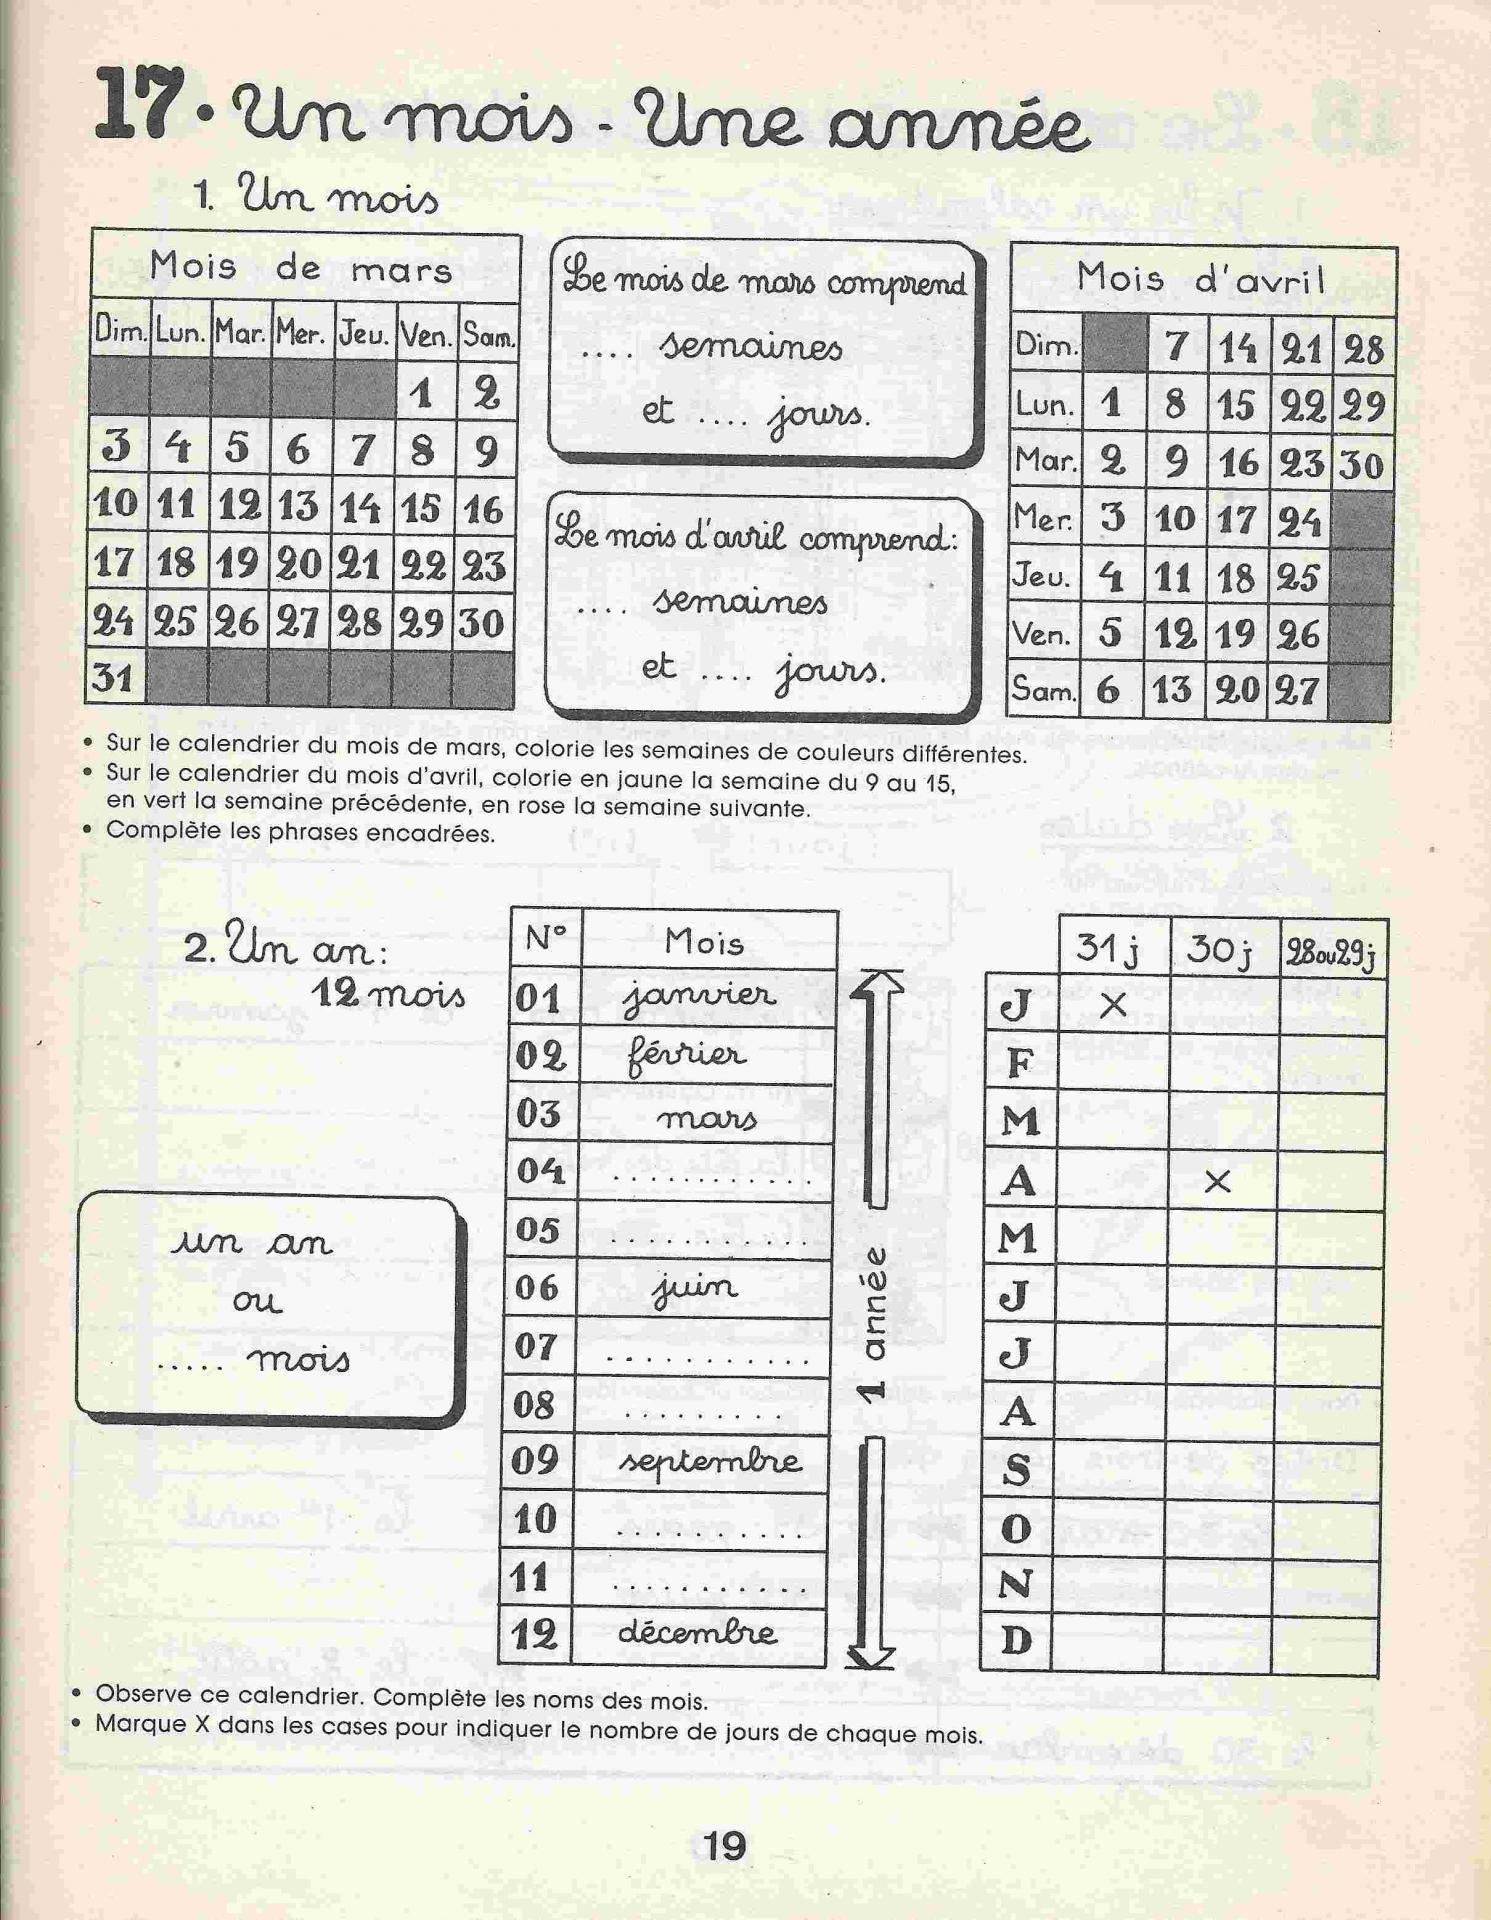 17. Un mois - Une année
1. Un mois
Mois de mars
Dim. Lun. Mar. Mer. Jeu. Ven. Sam.
1 2
3 4 5 6 7 8 9
10 11 12 13 14 15 16
17 18 19 20 21 22 23
24 25 26 27 28 29 30
31
Le mois de mars comprend
.... semaines
et .... jours.
Le mois d'avril comprend:
.... semaines
et .... jours.
Mois d'avril
Dim. 7 14 21 28
Lun. 1 8 15 22 29
Mar. 2 9 16 23 30
Mer. 3 10 17 24
Jeu. 4 11 18 25
Ven. 5 12 19 26
Sam. 6 13 20 27
• Sur le calendrier du mois de mars, colorie les semaines de couleurs différentes.
• Sur le calendrier du mois d'avril, colorie en jaune la semaine du 9 au 15,
en vert la semaine précédente, en rose la semaine suivante.
• Complète les phrases encadrées.
2. Un an:
12 mois
un an
ou
..... mois
N° Mois
01 janvier
02 février
03 mars
04 ............
05 ...........
06 juin
07 ...........
08 .........
09 septembre
10 ..........
11 ...........
12 décembre
1 année
31 j 30 j 28 ou 29 j
J X
F
M
A X
M
J
J
A
S
O
N
D
• Observe ce calendrier. Complète les noms des mois.
• Marque X dans les cases pour indiquer le nombre de jours de chaque mois.
19